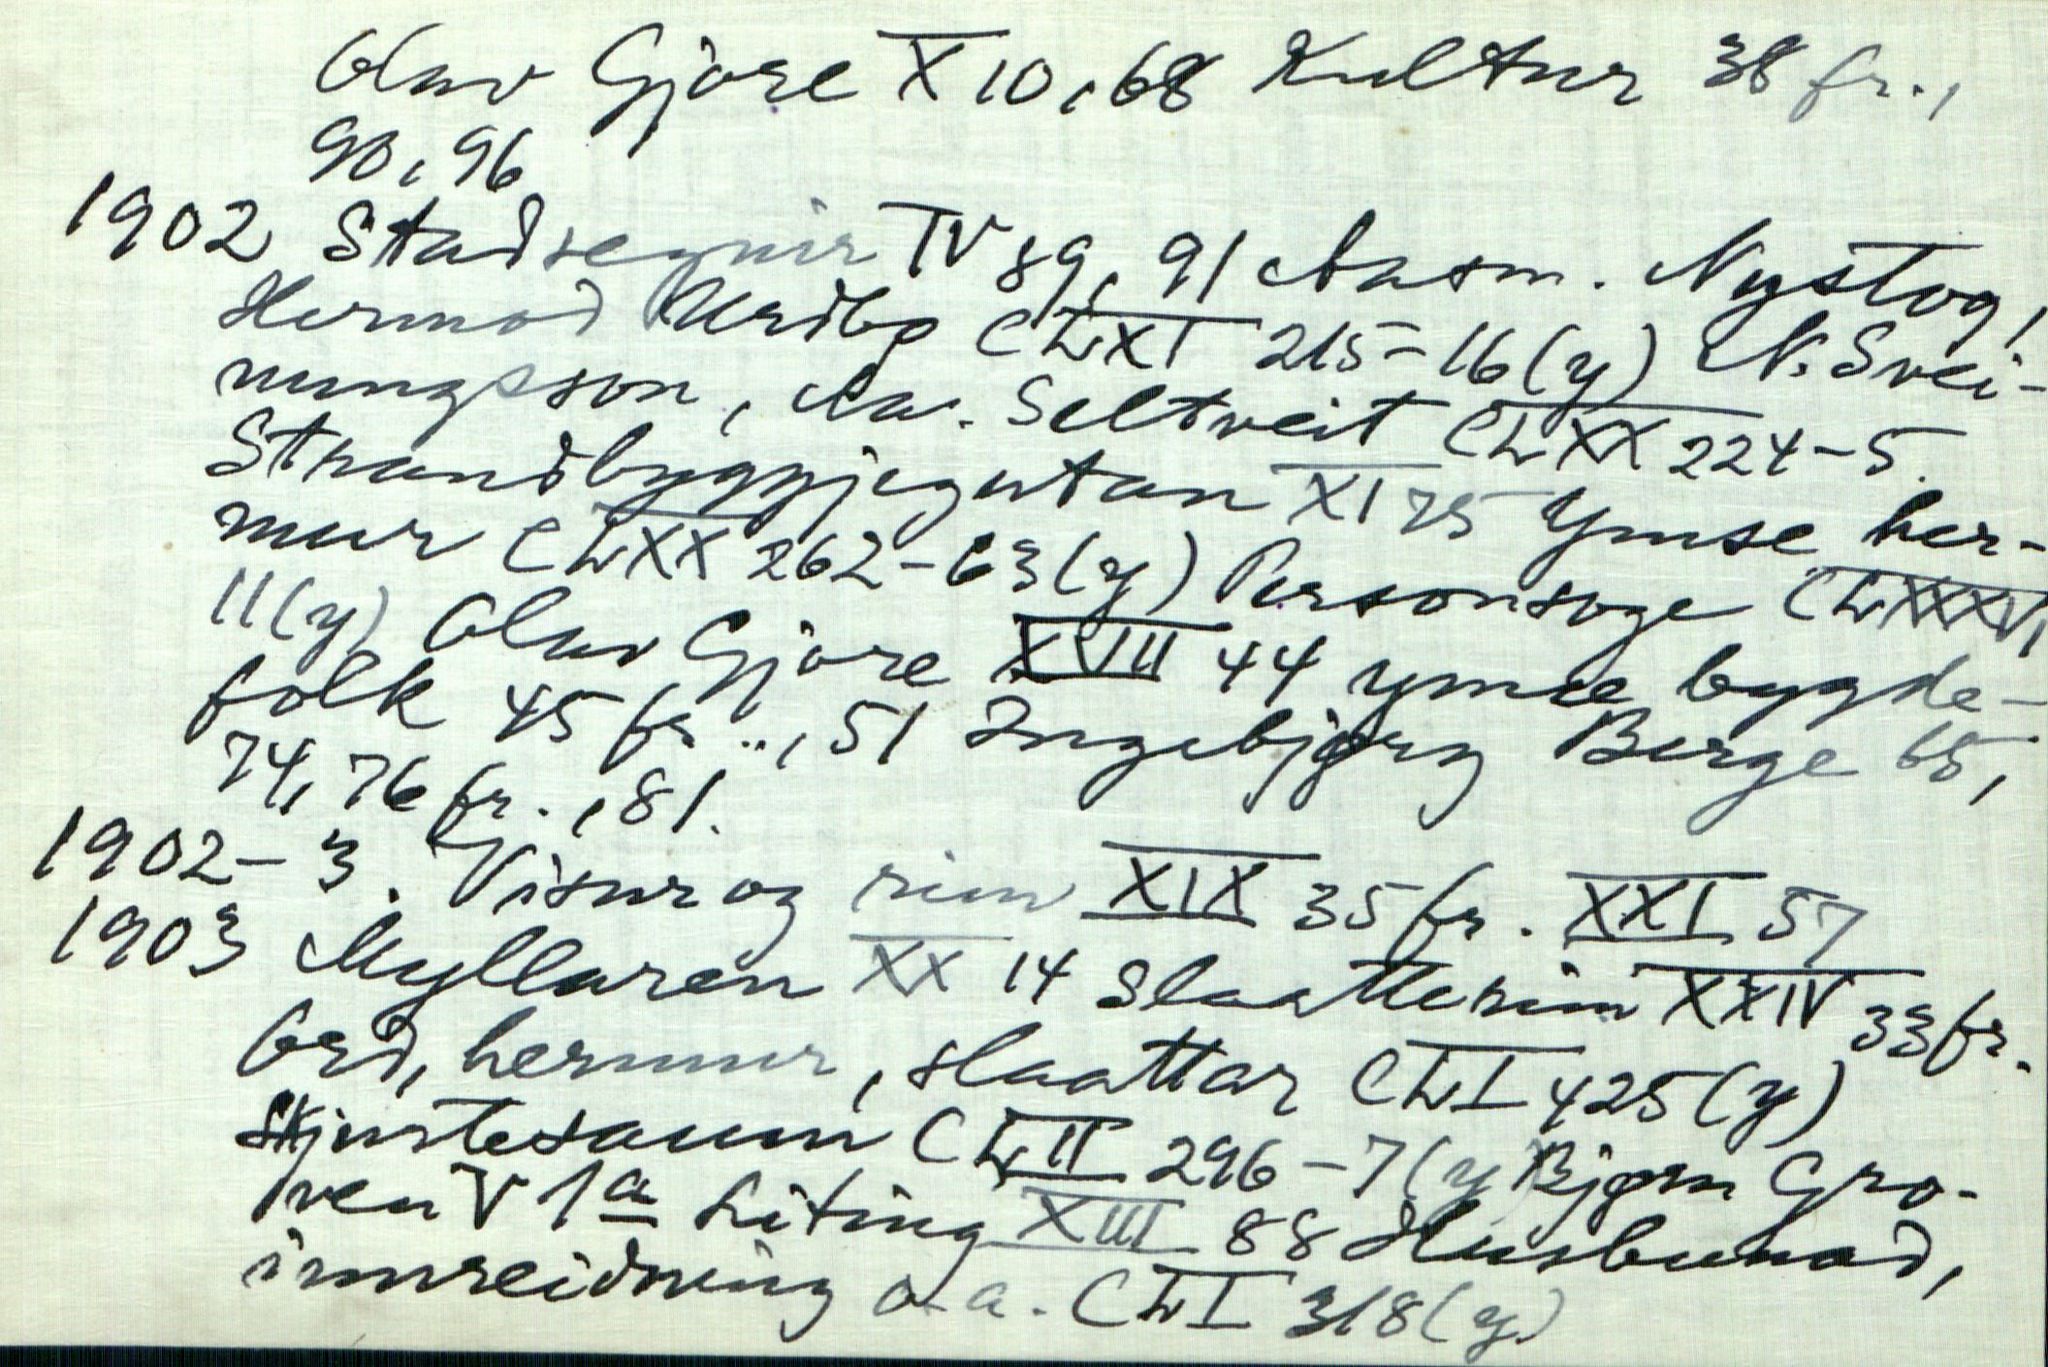 Olav Gjøre X 10, 68 Kultur 38 fr.,
90, 96
1902 Stadsegnir IV 89, 91 Aasm. Nystog,
Hermod Urdbø CLXXI 215-16 (y) N. Svei-
nungsson, Aa. Seltveit CLXX 224-5.
Strandbyggjegutan XI 75 Ymse her-
mur CLXX 262-63 (y) Personsoge CLXXXVI
11 (y) Olav Gjøre XVIII 44 ymse bygde-
folk 45 fr.., 51 Ingebjørg Berge 65,
74, 76 fr., 81.
1902-3. Visur og rim XIX 35 fr. XXI 57
1903 Myllaren XX 14 Slaatterim XXIV 33 fr.
Ord, hermur, slaattar CLI 425 (y)
Skjurtesaum CLII 296-7 (y) Bjørn Gro-
ven V 1a Liting XIII 88 Husbunad,
innreidning o. a. CLI 318 (y)